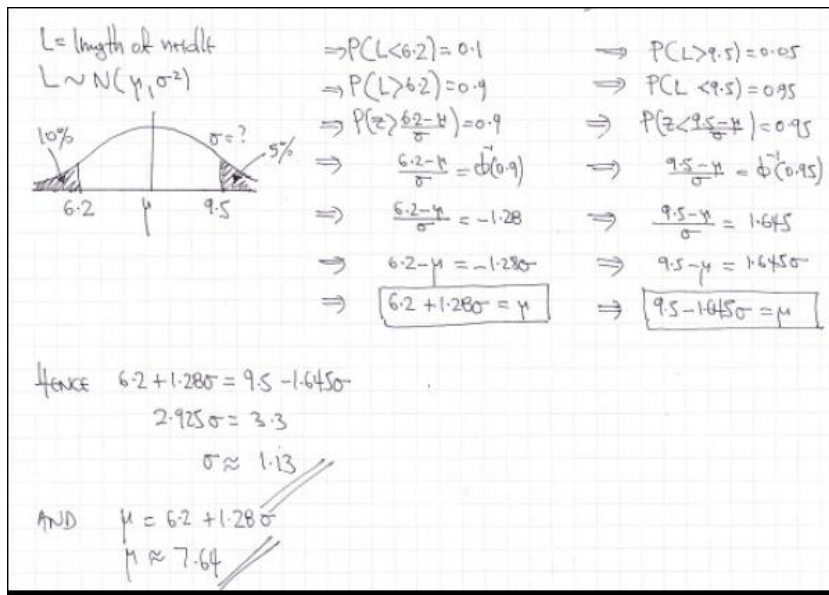 L = length of needle
L ~ N(μ, σ²)
10%
σ = ?
5%
6.2 μ 9.5
⇒ P(L<6.2) = 0.1
⇒ P(L>6.2) = 0.9
⇒ P(Z> (6.2-μ)/σ ) = 0.9
⇒ (6.2-μ)/σ = Φ⁻¹(0.9)
⇒ (6.2-μ)/σ = -1.28
⇒ 6.2-μ = -1.28σ
⇒ 6.2 + 1.28σ = μ
⇒ P(L>9.5) = 0.05
⇒ P(L<9.5) = 0.95
⇒ P(Z< (9.5-μ)/σ ) = 0.95
⇒ (9.5-μ)/σ = Φ⁻¹(0.95)
⇒ (9.5-μ)/σ = 1.645
⇒ 9.5-μ = 1.645σ
⇒ 9.5-1.645σ = μ
HENCE 6.2 + 1.28σ = 9.5 - 1.645σ
2.925σ = 3.3
σ ≈ 1.13
AND μ = 6.2 + 1.28σ
μ ≈ 7.64